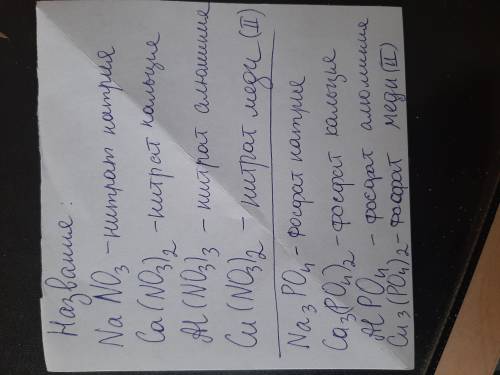 Названия:
NaNO3 - нитрат натрия
Ca(NO3)2 - нитрат кальция
Al(NO3)3 - нитрат алюминия
Cu(NO3)2 - нитрат меди (II)
Na3PO4 - фосфат натрие
Ca3(PO4)2 - фосфат кальция
AlPO4 - фосфат алюминия
Cu3(PO4)2 - фосфат меди (II)